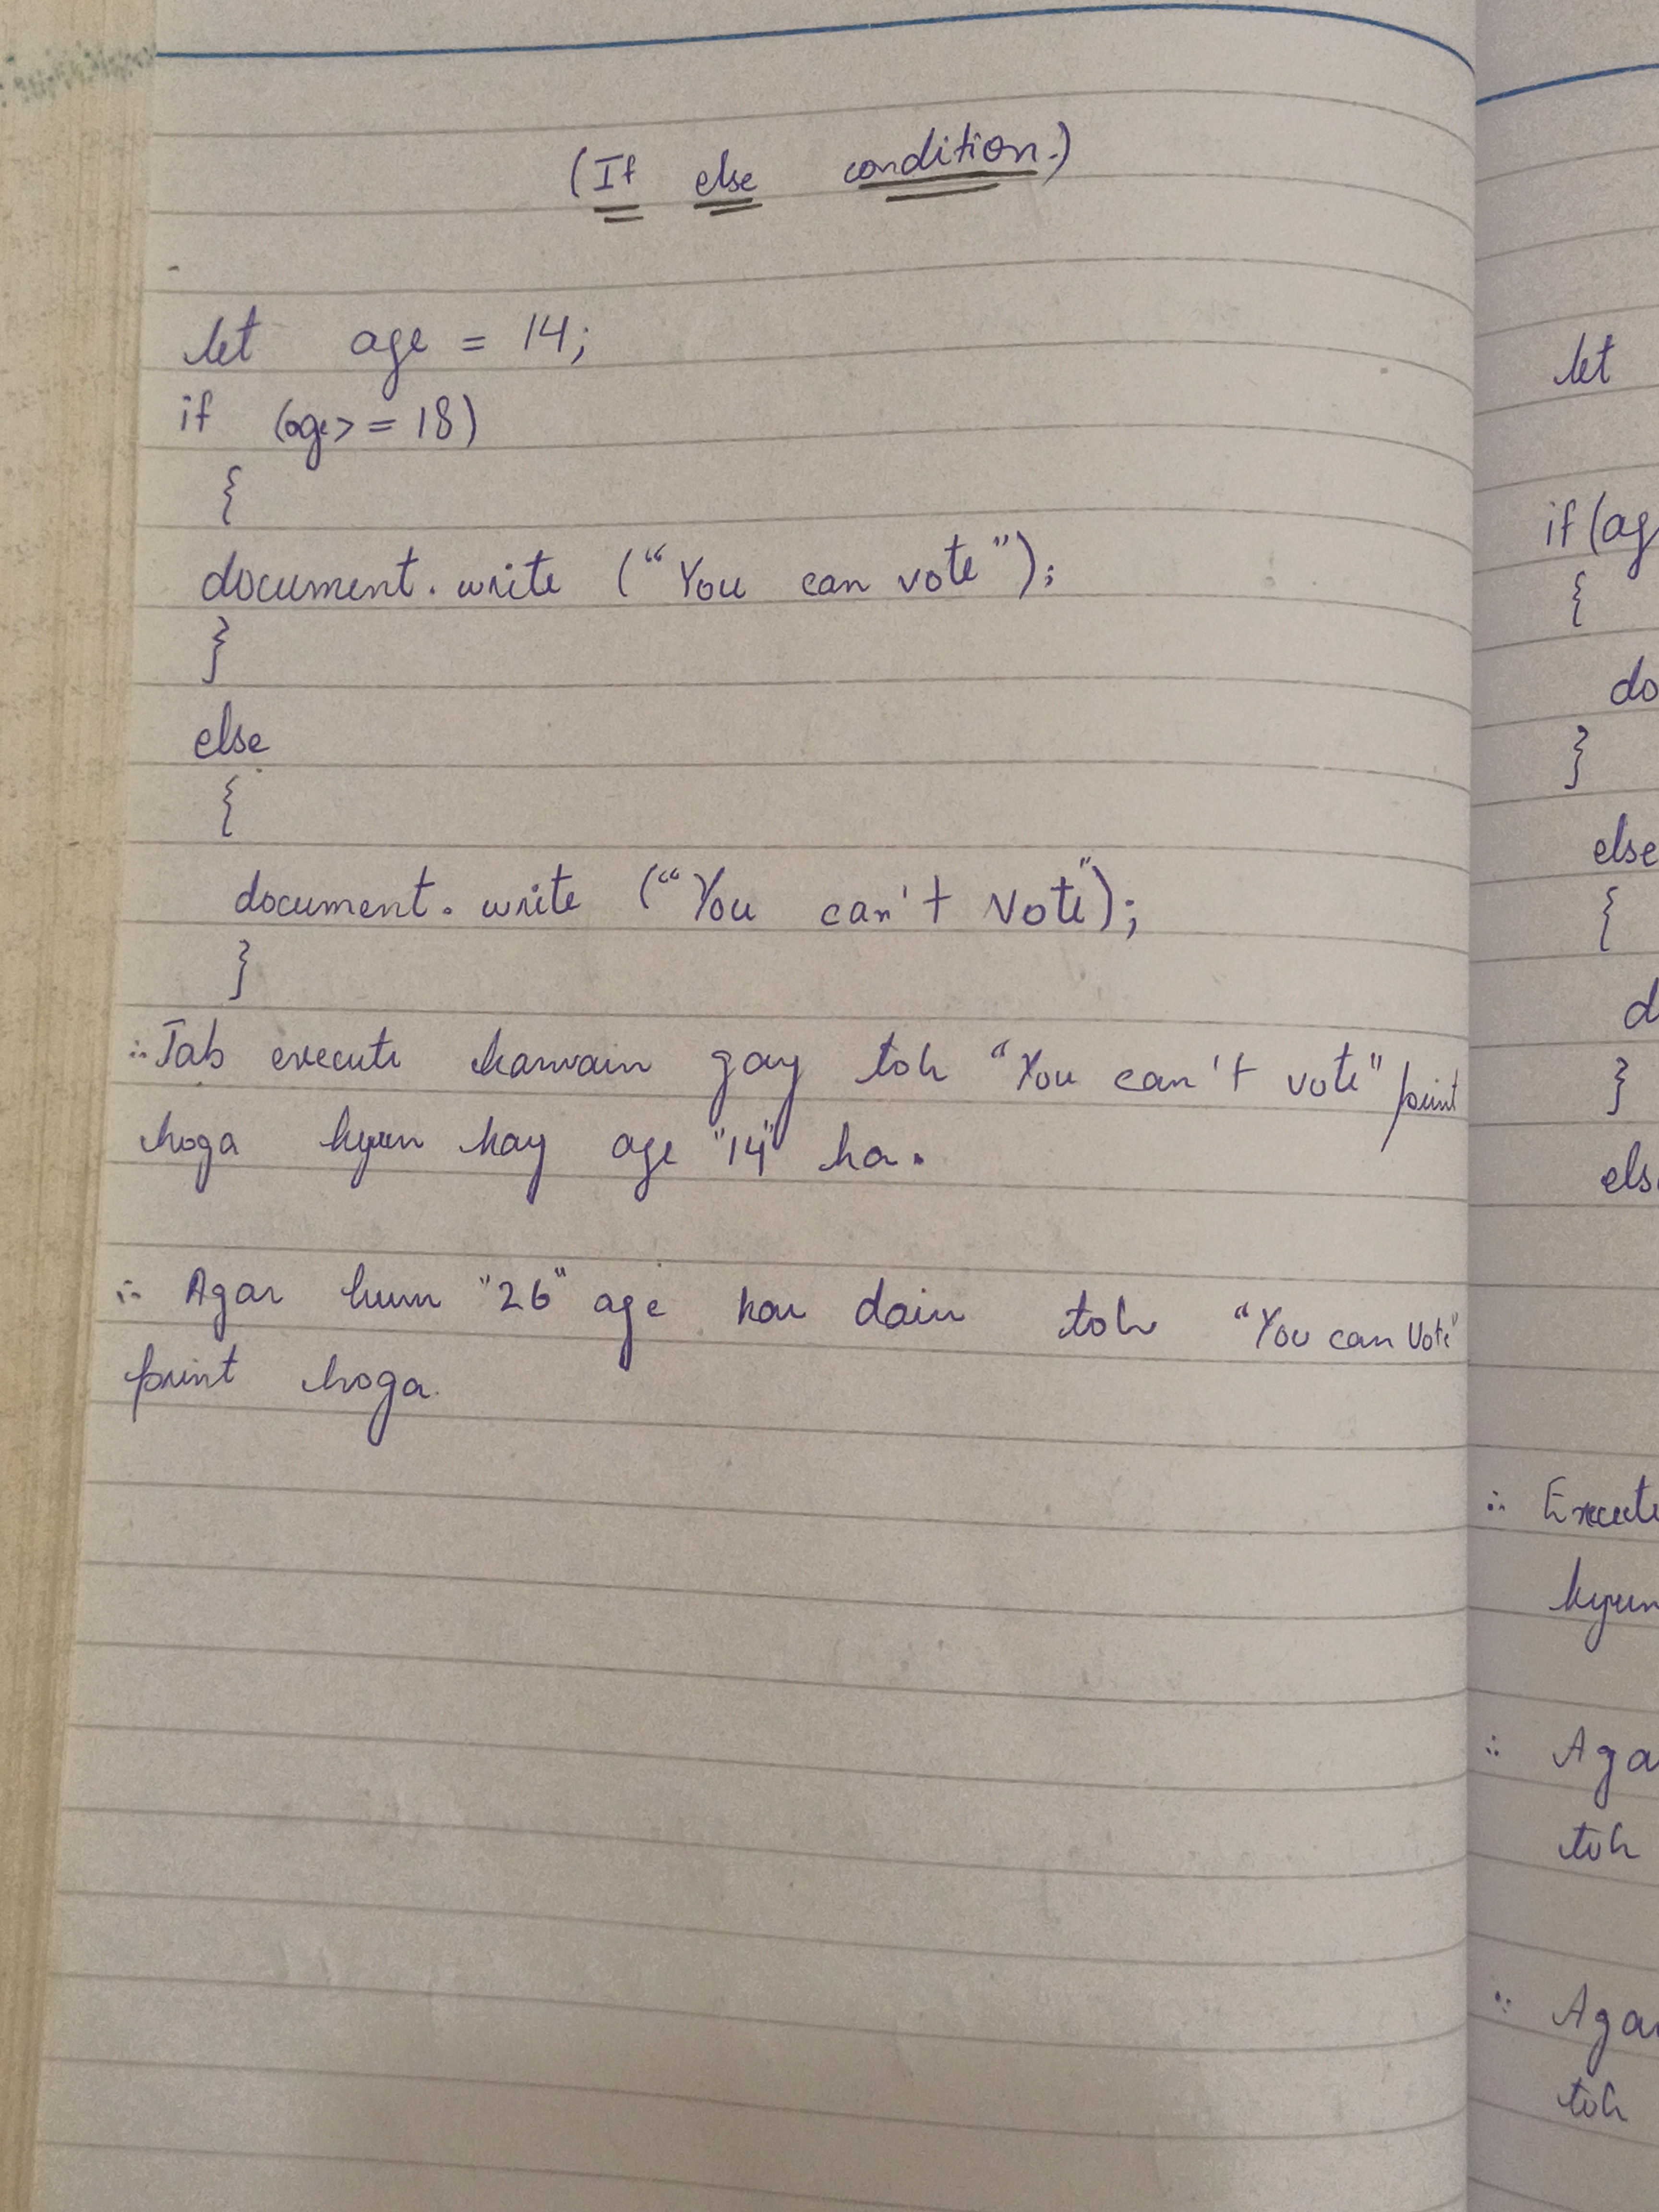 (If else condition.)
let age = 14;
if (age >= 18)
{
document.write ("You can vote");
}
else
{
document.write ("You can't Vote");
}
∴ Jab execute karwain gay toh "You can't vote" print
hoga kyun kay age "14" ha.
∴ Agar hum "26" age kar dain toh "You can Vote"
print hoga.
let
if (ag
{
do
}
else
{
d
}
els
∴ Execute
kyun
∴ Aga
toh
∴ Aga
toh